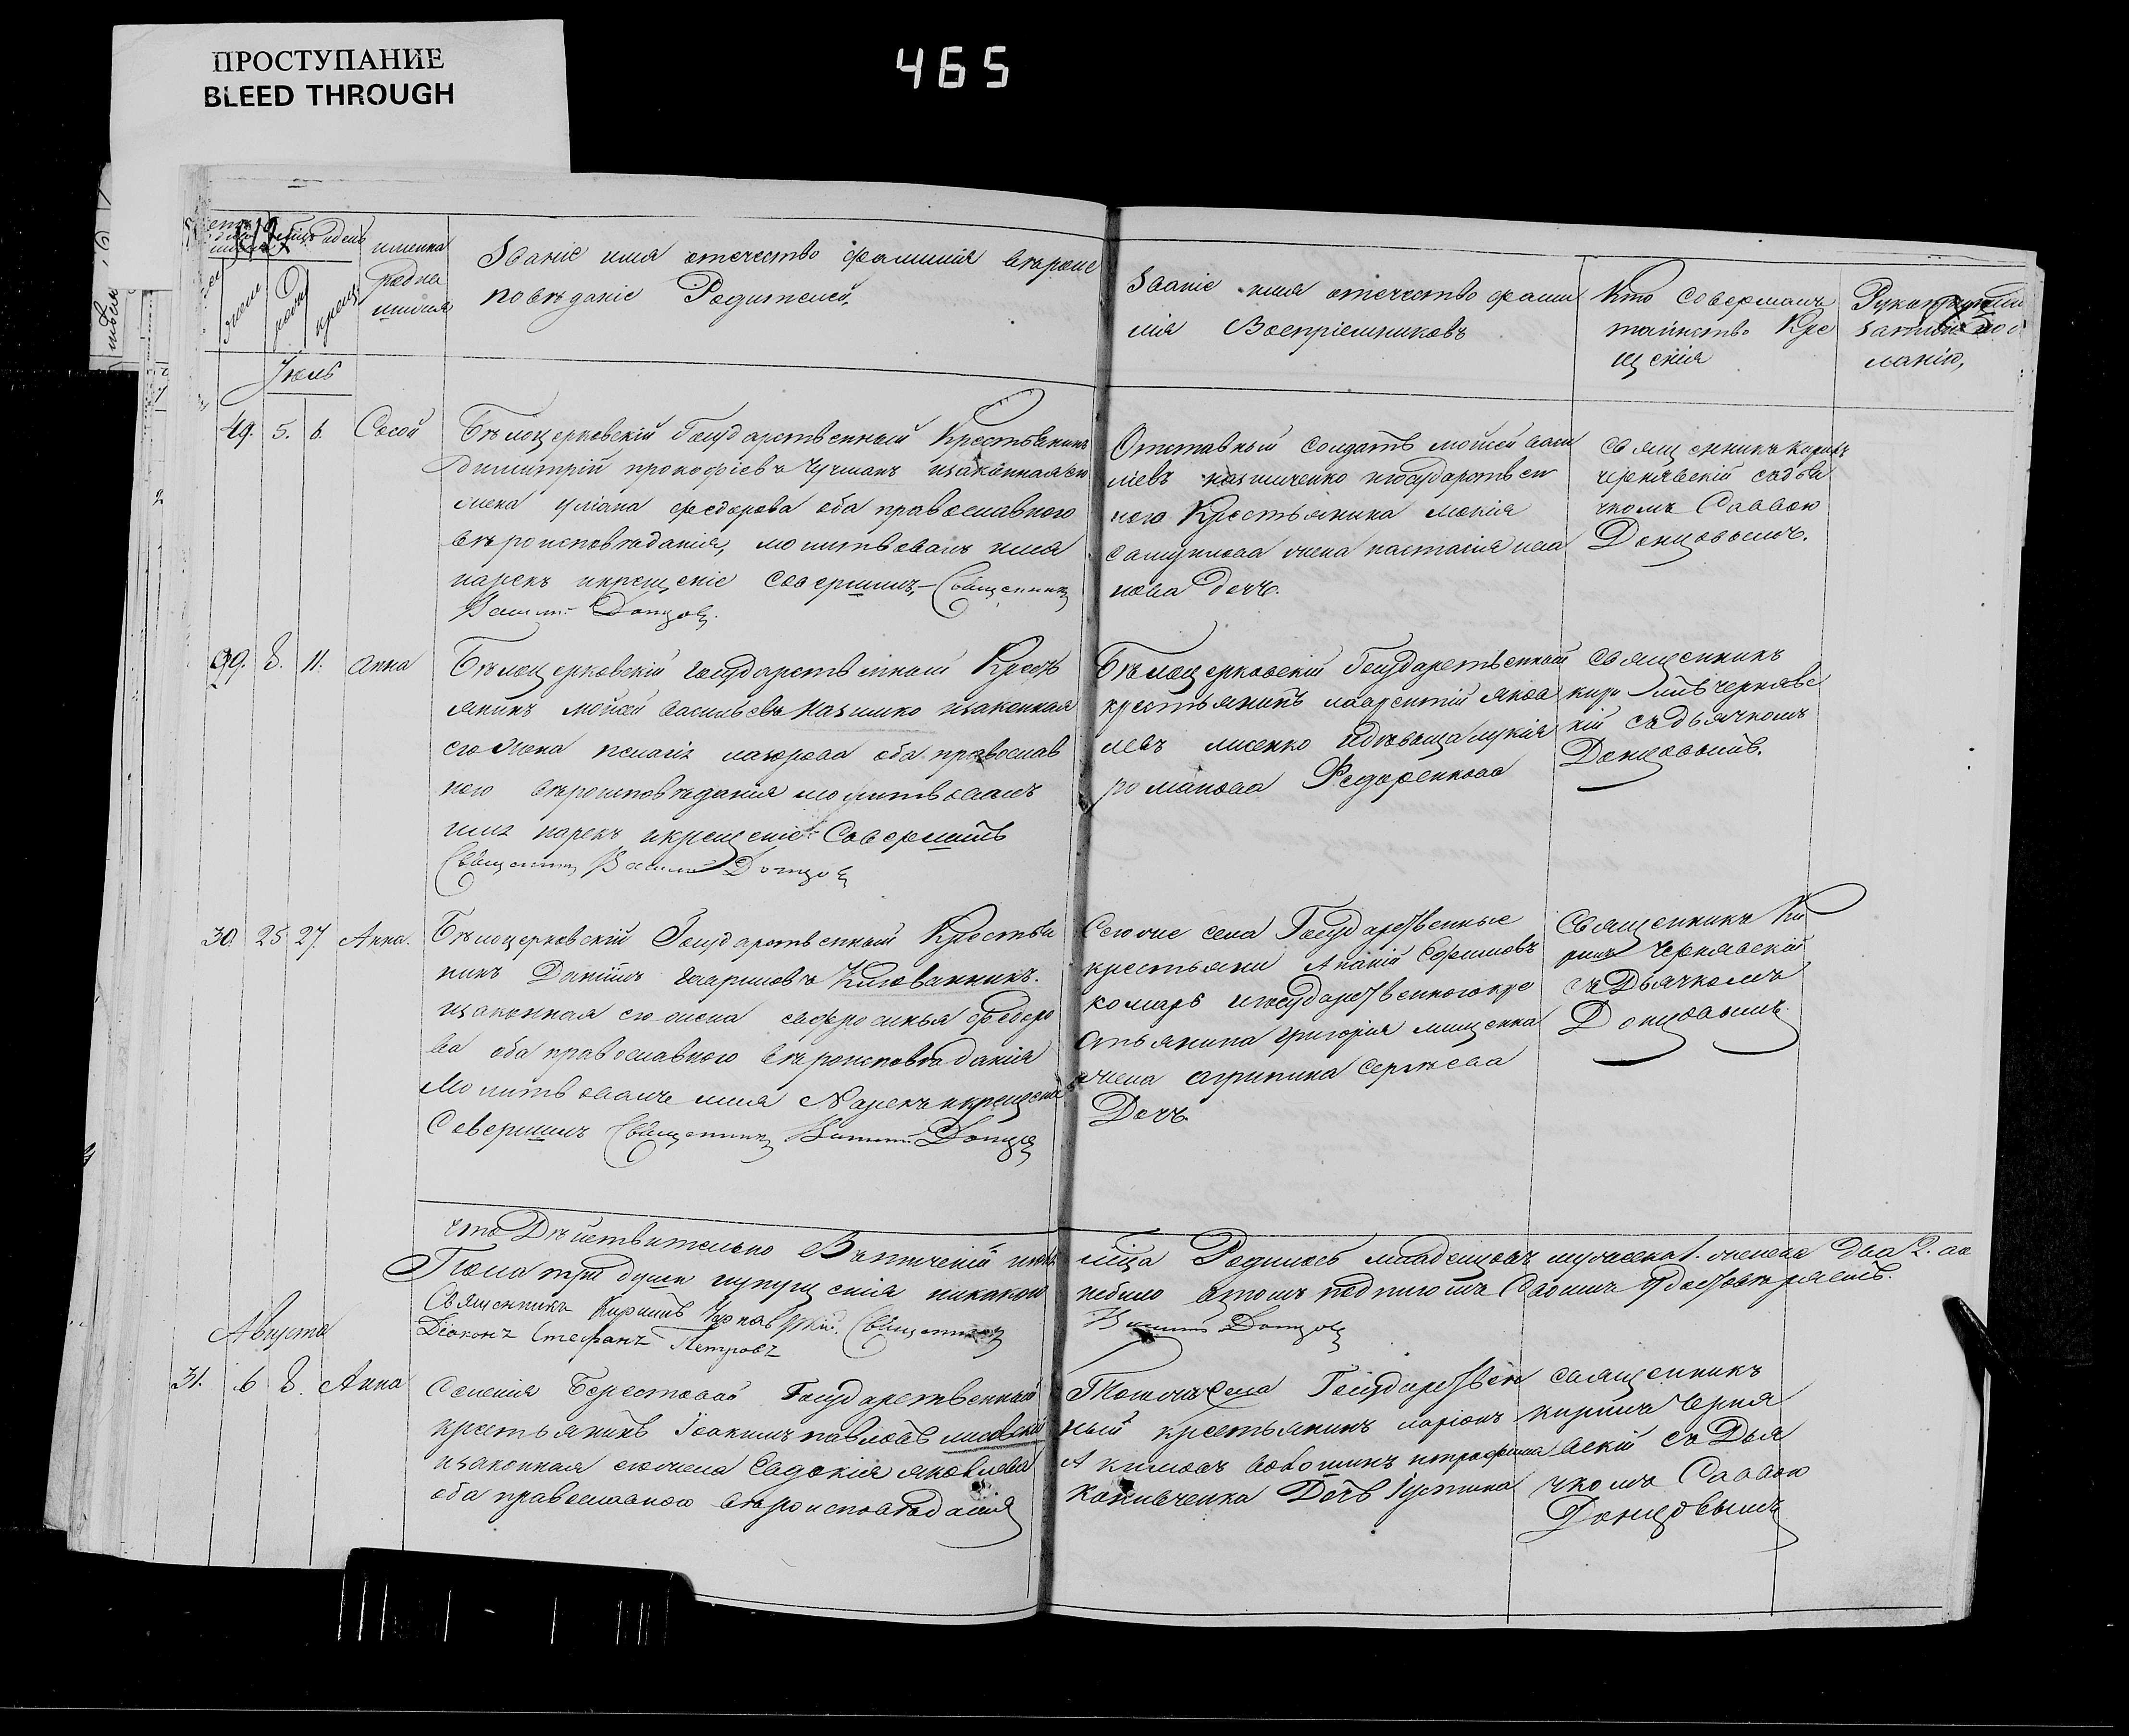 ПРОСТУПАНИЕ
BLEED THROUGH
465
имена
родив
шихся
Званіе имя отечество фамилія вѣроис
повѣданіе Родителей,
Званіе имя отечество фами
лія Воспріемниковъ
Кто совершалъ
таинство Кре
щенія
ланію,
Июль
49. 5. 6. Сысой
Бѣлоцерковскій Государственный Крестьянинъ
Димитрій прокофіевъ Чучманъ изаконнаяего
жена уліана федорова оба православного
вѣроисповѣданія, молитвовалъ имя
нарекъ икрещеніе совершилъ Священникъ
Донцовъ.
Отставный солдатъ мойсей васи
ліевъ игосударствен
ного Крестьянина
самуилова жена настасія ива
нова дочь.
священникъ Кирилъ
чернявскій съдья
чкомъ Саввою
Донцовымъ.
99. 8. 11. Анна
Бѣлоцерковскій государственный Кресть
янинъ мойсей васильевъ изаконная
его жена пелагія оба православ
ного вѣроисповѣданія молитвовалъ
имя нарекъ икрещеніе Совершилъ
Священникъ Донцовъ
Бѣлоцерковскій Государственный
крестьянинъ лаврентій яков
левъ лисенко идѣвица лукія
романова Федоренкова
Священникъ
чернявс
кій съдьячкомъ
Донцовымъ.
30. 25 27 Анна.
Бѣлоцерковскій Государственный Крестья
нинъ Даніилъ гавриловъ
изаконная его жена евфросинья федоро
ва оба православного вѣроисповѣданія
Молитвовалъ имя Нарекъ икрещеніе
Совершилъ Священникъ Донцовъ
Сегоже села Государственные
крестьяни Ананій Ефимовъ
комаръ игосударственногокре
стьянина григорія мищенка
жена агрипина сергѣева
Дочь.
Священникъ Ки
рилъ Чернявскій
съДьячкомъ
Донцовымъ.
что Дѣйствительно Втеченіи июля
мѣсяца Родилось младенцовъ мужеска 1. женска два 2. ая
душа пущенія никакого
небыло вчомъ подписомъ Своимъ удостовѣряемъ.
Священникъ Кирилъ Чернявскій. Священникъ
Донцовъ
Діаконъ Стефанъ Петровъ
Августа
31. 6 8. Анна
Селенія Берестовой Государственный
крестьянинъ Іоакимъ павловъ лисовскій
изаконная егожена Евдокія яковлева
оба православного вѣроисповѣданія
Тогожъ Села Государствен
ный крестьянинъ ларіонъ
Акимовъ волошинъ
Канивченка Дочь Іустина
священникъ
кирилъ Черня
вскій съДья
чкомъ Саввою
Донцовымъ